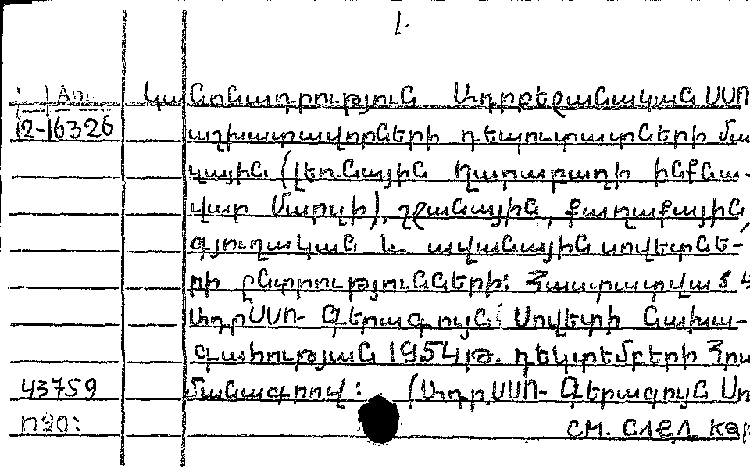 1.
Կանոնադրություն Ադրբեջանական ՍՍՌ
2-16326 աշխատավորների դեպուտատների մա
վային (լեռնային Ղարաբաղի ինքնա-
վար մարզի), շրջանային, քաղաքային,
գյուղական և ավանային սովետնե-
րի ընտրությունների: Հաստատված է
Ադր ՍՍՌ Գերագույն Սովետի նախա-
գահության 1954 թ. դեկտեմբերի հրա
43759 մանագրով: (Ադր. ՍՍՌ Գերագույն Սո
см. след. кар